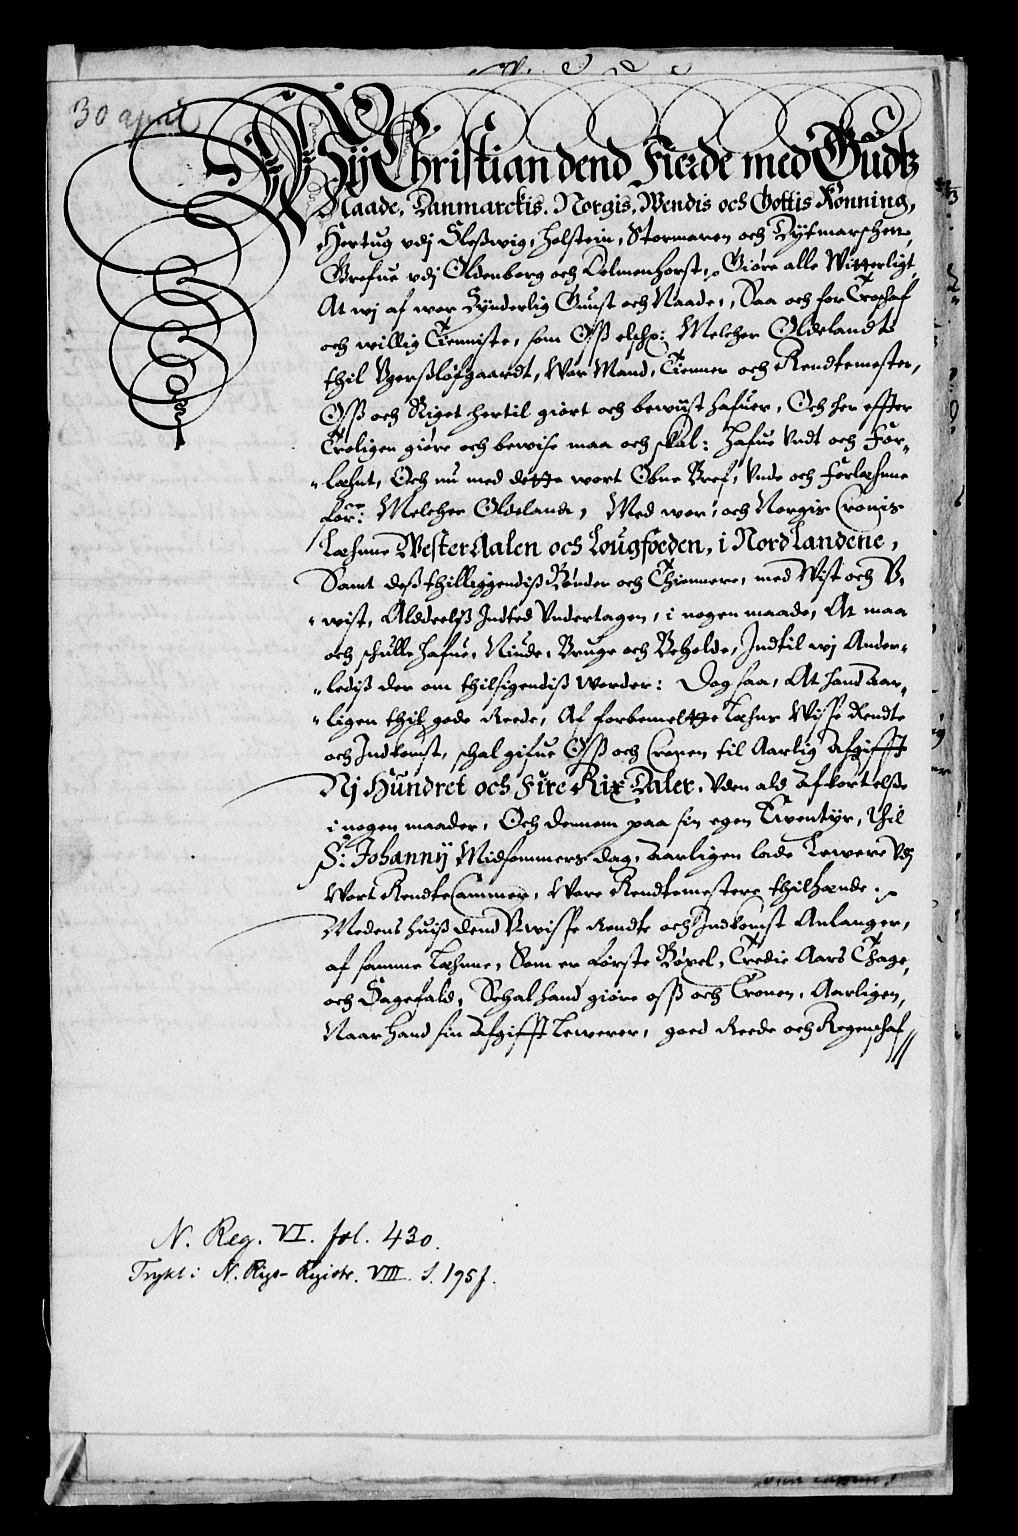 30 april
Wij Christian dend Fierde med Gudtz
Naade, Danmarckis, Norgis, Wendis och Gottis Konning,
Hertug vdj Sleßwig, Holstein, Stormaren och Dytmarschen,
Grefue vdj Oldenborg och Delmenhorst, Giøre alle Witterligt,
At wj af wor Synderlig Gunst och Naade, Saa och for Troschaf
och willig Tienniste, som Oß elschl: Melcher Oldelandt
thil Vgerßløfgaardt, Wor Mand, Tienner och Rendtemester,
Oß och Riget hertil giort och bewist hafuer, Och her effter
Troligen giøre och bewise maa och skal: Hafue Undt och For-
-læhnt, Och nu med dette wort Obne Bref, Unde och forlæhnne
for:ne Melcher Oldelandt, Med wor, och Norgis Cronis
Læhnne WesterAalen och Lougfoeden, i NordLandene,
Sambt deß thilliggendiß Bønder och Thiennere, med Wist och V-
-wist, Alddeelß Indted Undertagen, i nogen maade, At maa
och schulle hafue, Niude, Bruge och Beholde, Indtil wj Ander-
-lediß der om thilsigendiß worder: Dog saa, At hand Aar-
-ligen thil gode Reede, Af forbemeltte Læhns Wisse Rendte
och Indkomst, schal gifue Oß och Cronen til Aarlig Afgifft
Nj Hundret och Fire Rix Daler, Uden ald Afkortelße
i nogen maader, Och dennem paa sin egen Eventyr, thil
S: Johannij Midsommers dag, Aarligen lade Lewere Udj
Wort RendteCammer, Wore Rendtemestere thilhænde.
Medens huiß dend Vwisse Rendte och Indkomst Anlanger,
af samme Læhnne, Som er Første Bøxel, Tredie Aars Thage,
och Sagefald, Schal hand giøre oß och Cronen, Aarligen,
Naar hand sin Afgifft Lewerer, goed Reede och Regenschaf
N. Reg. VI. fol. 430.
Trykt i N. Rigs-Registr. VIII. S. 195 f.